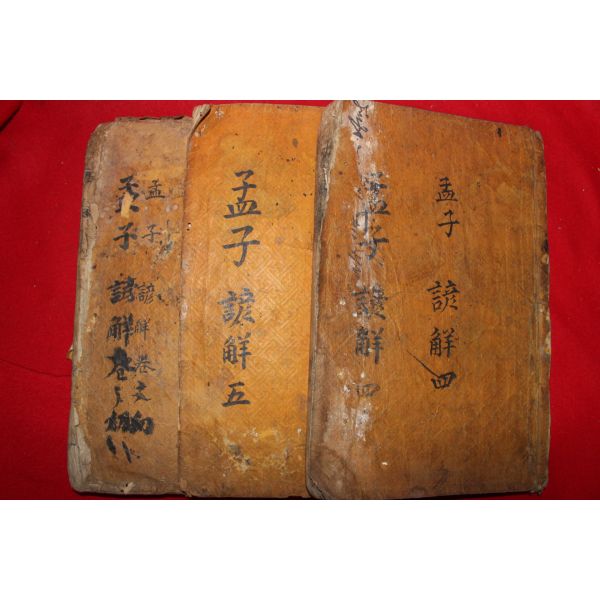 孟子 諺解 四
孟子 諺解 四
孟子 諺解 五
孟子 諺解 卷
孟子 諺解 卷之